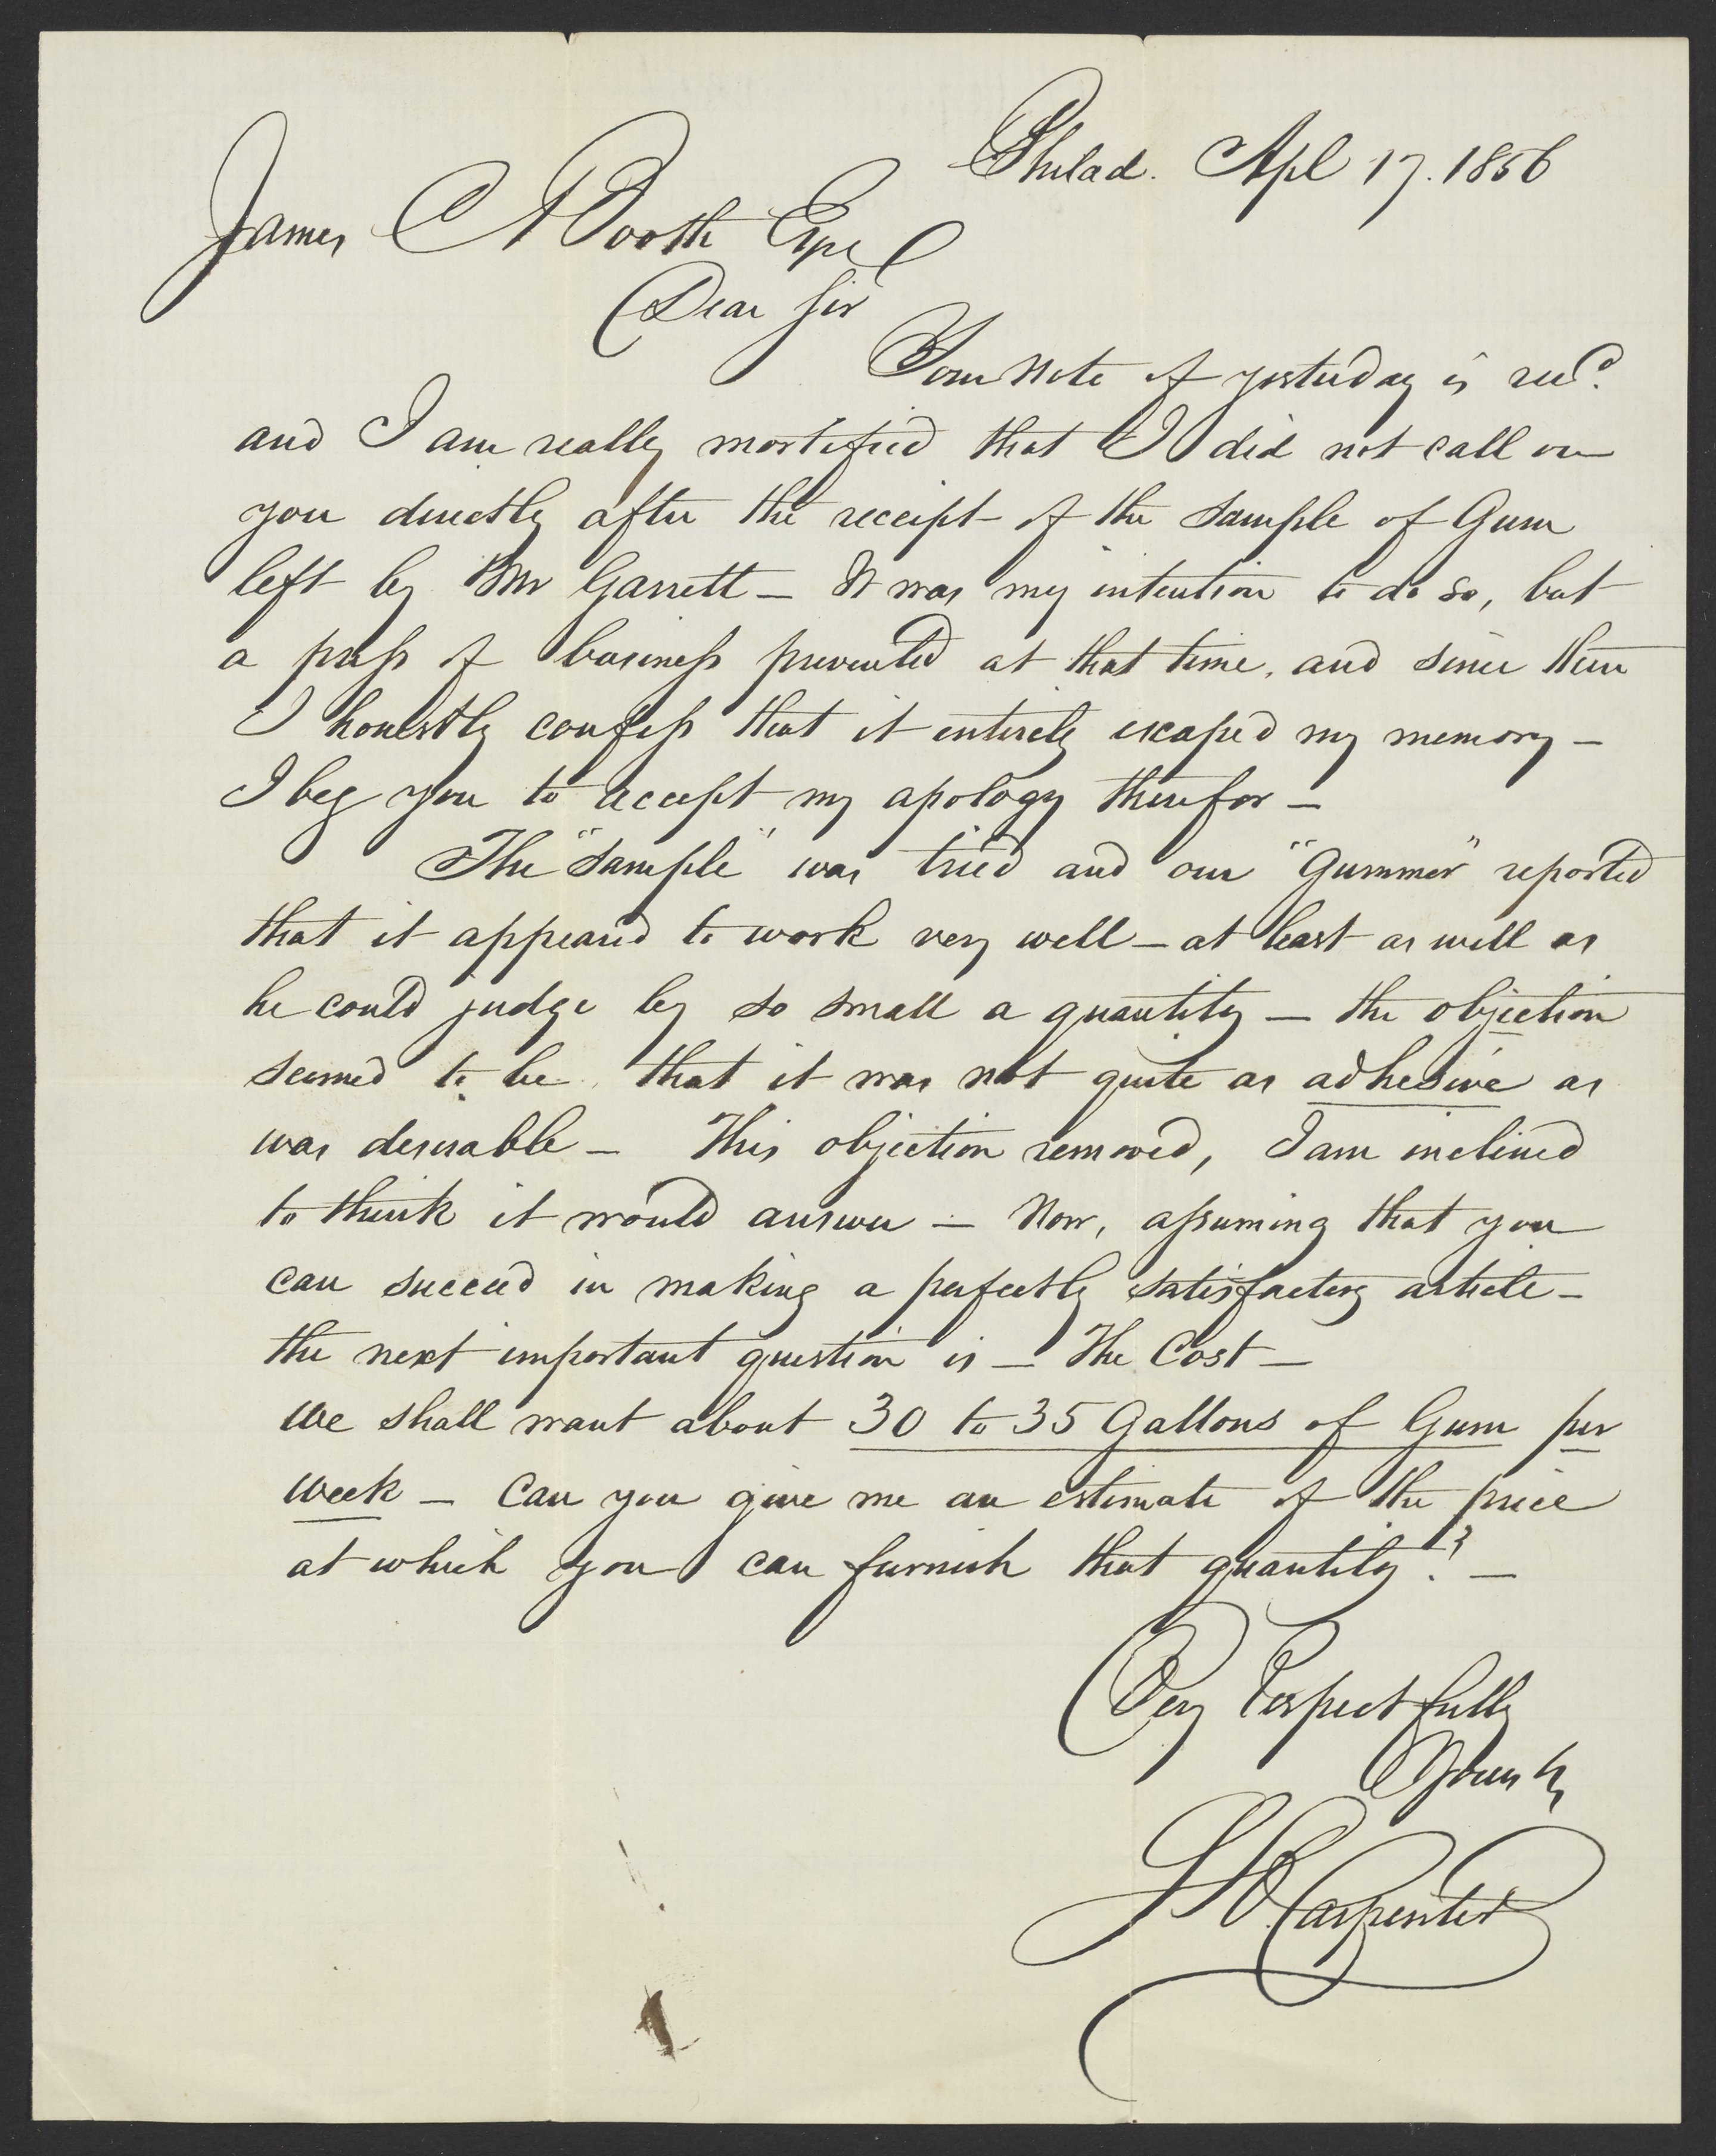 Philad. Apl 17. 1856
James C Booth Esqr
Dear Sir
Your note of yesterday is recd.
and I am really mortified that I did not call on
you directly after the receipt of the sample of Gum
left by Mr Garrett — It was my intention to do so, but
a press of business prevented at that time, and since then
I honestly confess that it entirely escaped my memory —
I beg you to accept my apology therefor —
The "sample" was tried and our "Gummer" reported
that it appeared to work very well — at least as well as
he could judge by so small a quantity — the objection
seemed to be that it was not quite as adhesive as
was desirable — This objection removed, I am inclined
to think it would answer — Now, assuming that you
can succeed in making a perfectly satisfactory article —
the next important question is — The Cost —
We shall want about 30 to 35 Gallons of Gum per
week — Can you give me an estimate of the price
at which you can furnish that quantity? —
Very Respectfully
Yours &c
Carpenter